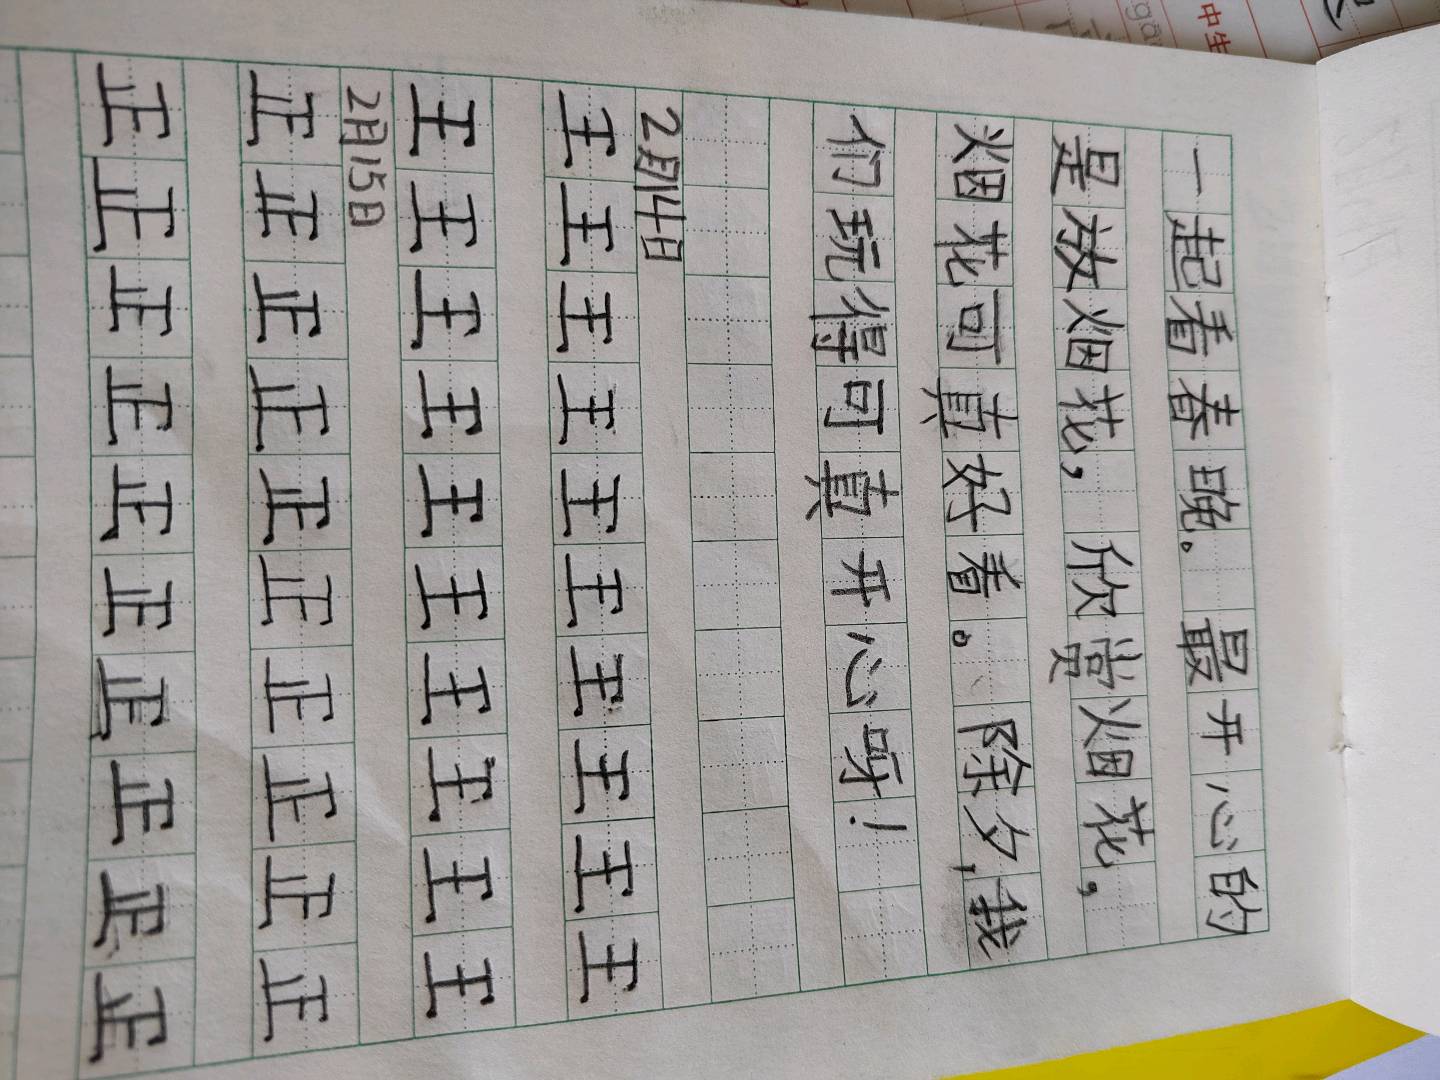 一起看春晚。最开心的
是放烟花，欣赏烟花，
烟花可真好看。除夕，我
们玩得可真开心呀！
2月14日
王王王王王王王王王王
王王王王王王王王王王
2月15日
正正正正正正正正正正
正正正正正正正正正正
中生